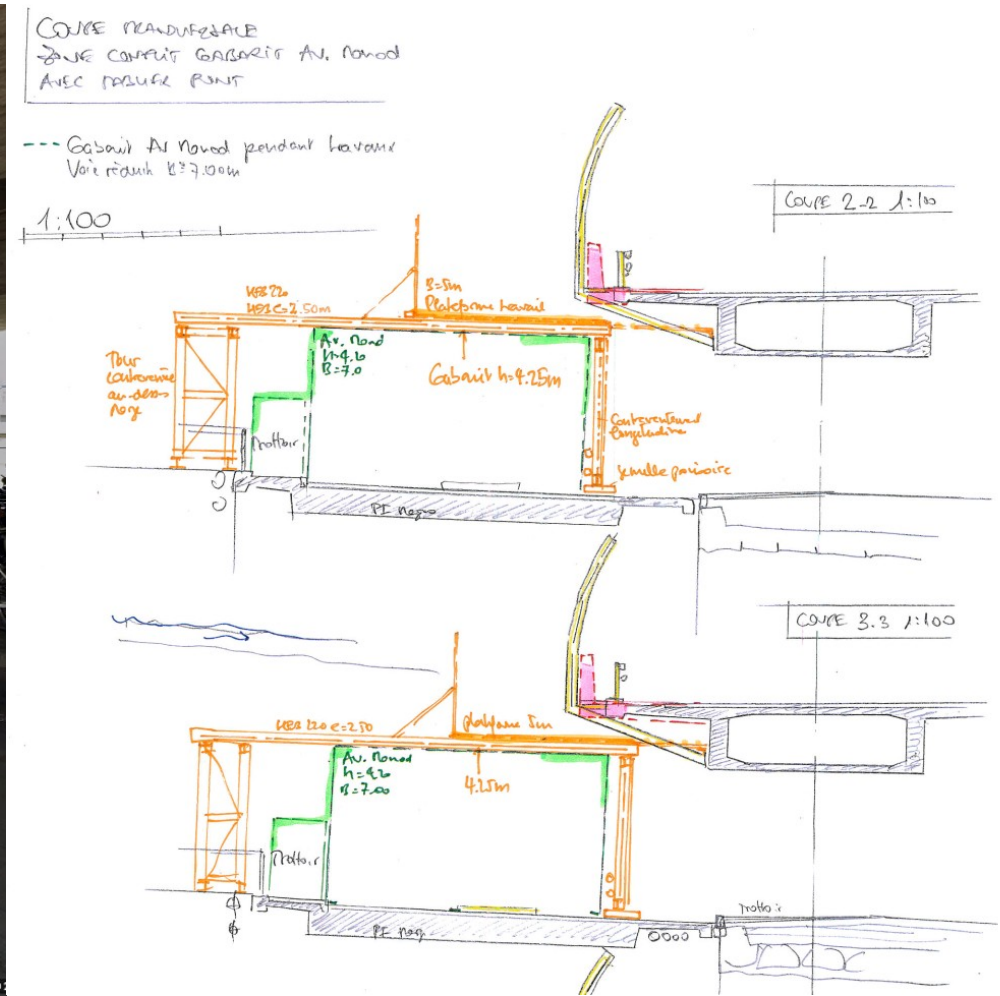 COUPE TRANSVERSALE
ZONE CONFLIT GABARIT AV. Monod
AVEC TABLIER PONT
--- Gabarit Av Monod pendant travaux
Voie réduite B=7.00m
1:100
COUPE 2-2 1:100
HEB 220
e=2.50m
B=5m
Plateforme travail
Av. Monod
h=4.20
B=7.0
Gabarit h=4.25m
Tour
contreventée
au-dessus
trottoir
Contreventement
longitudinal
semelle provisoire
PI
COUPE 3.3 1:100
HEB 220 e=2.50
plateforme 5m
Av. Monod
h=4.20
B=7.00
4.25m
trottoir
trottoir
PI